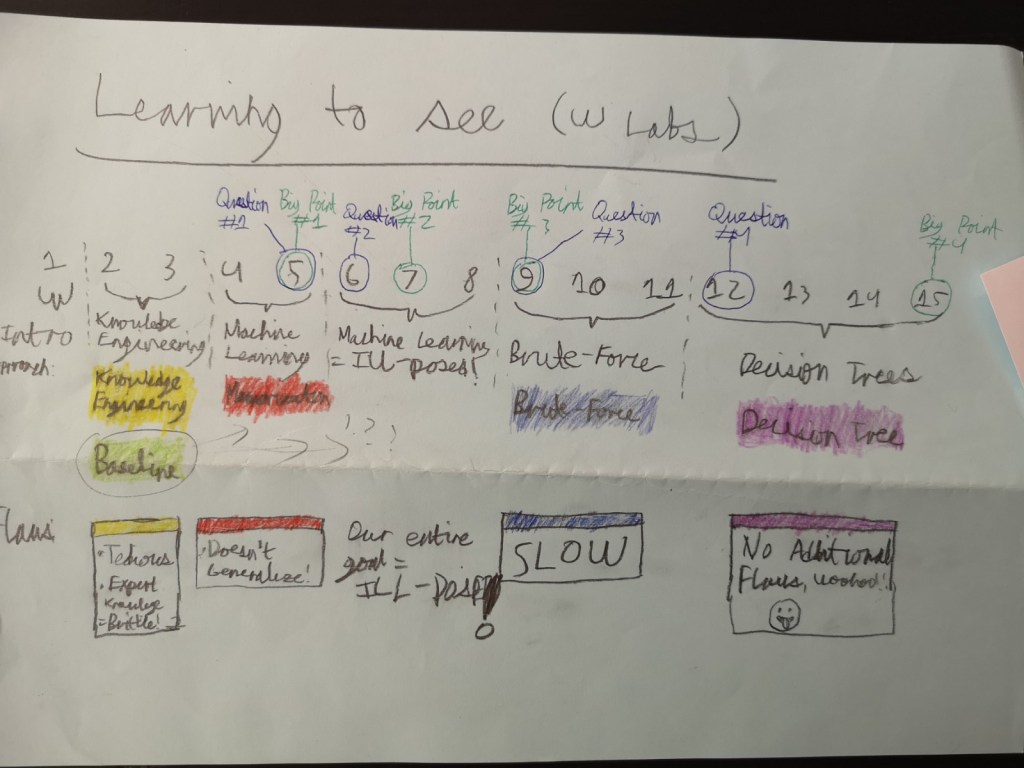 Learning to see (w Labs)
Question
#1
Big Point
#1
Question
#2
Big Point
#2
Big Point
#3
Question
#3
Question
#4
Big Point
#4
1 2 3 4 5 6 7 8 9 10 11 12 13 14 15
Intro
Knowlabe
Engineering
Machine
Learning
Machine Learning
= ILL-poses!
Brute-Force
Decision Trees
proach:
Knowledge
Engineering
Memorization
Brute-Force
Decision Tree
Baseline
???
Flaws
• Tedious
• Expert
Knowledge
= Brittle!
• Doesn't
Generalize!
Our entire
goal =
ILL-Posed!
SLOW
No Additional
Flaws, woohoo!!